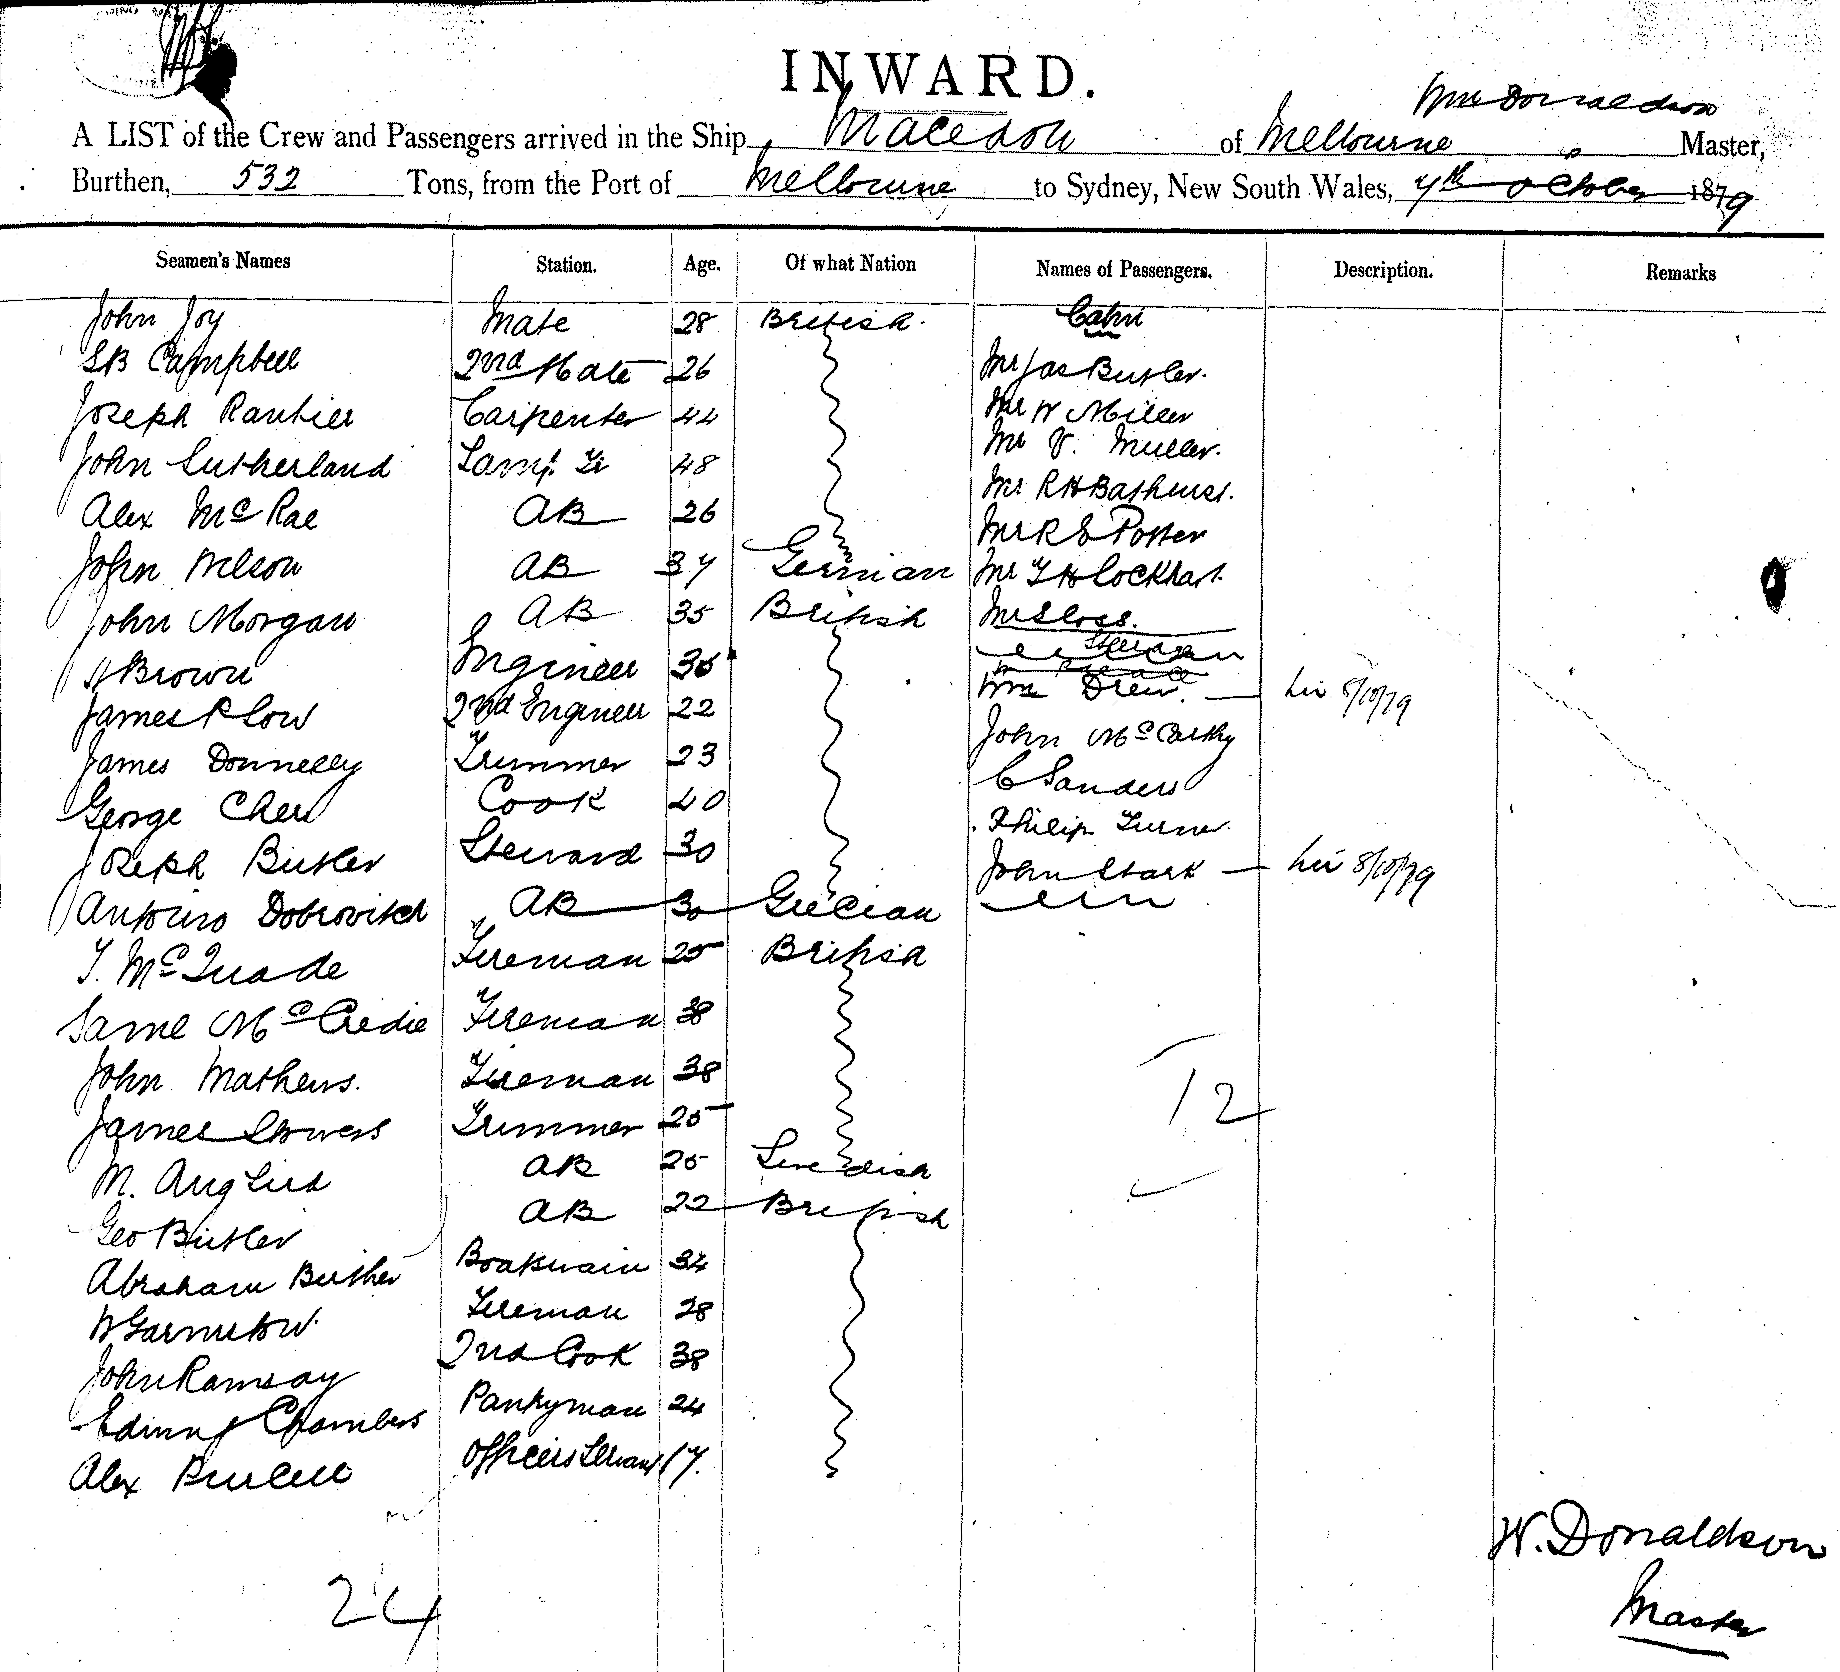 INWARD.
Wm Donaldson
A LIST of the Crew and Passengers arrived in the Ship Macedon of Melbourne Master,
Burthen, 532 Tons, from the Port of Melbourne to Sydney, New South Wales, 7th October 1879
Seamen's Names Station. Age. Of what Nation Names of Passengers. Description. Remarks
John Joy Mate 28 British. Cabin
S B Campbell 2nd Mate 26 Mr Jas Butler.
Joseph Carpenter 44 Mr W Miller
John Sutherland Lamp Tr 48 Mr V. Muller.
Alex McRae AB 26 Mr R H Bathurst.
Mr R E Potter
John Nelson AB 37 German Mr T H Lockhart.
John Morgan AB 35 British Mr Sloss.
H Brown Engineer 35 Steerage
James R Low 2nd Engineer 22 Wm Drew.
8/10/79
James Donnelly Trimmer 23 John McCarthy
George Cook 40 C Sanders
Joseph Butler Steward 30 Philip Turner
John Stark 8/10/79
Antonio Dobrovitch AB 30 Grecian
T. McQuade Fireman 25 British
McCredie Fireman 38
John Mathews. Fireman 38
12
James Trimmer 25
M. AB 25 Swedish
Geo Butler AB 22 British
Abraham Boatswain 34
W Fireman 28
John Ramsay 2nd Cook 38
Edmund Chambers Pantryman 24
Alex Officers Servant 17.
W. Donaldson
Master
24